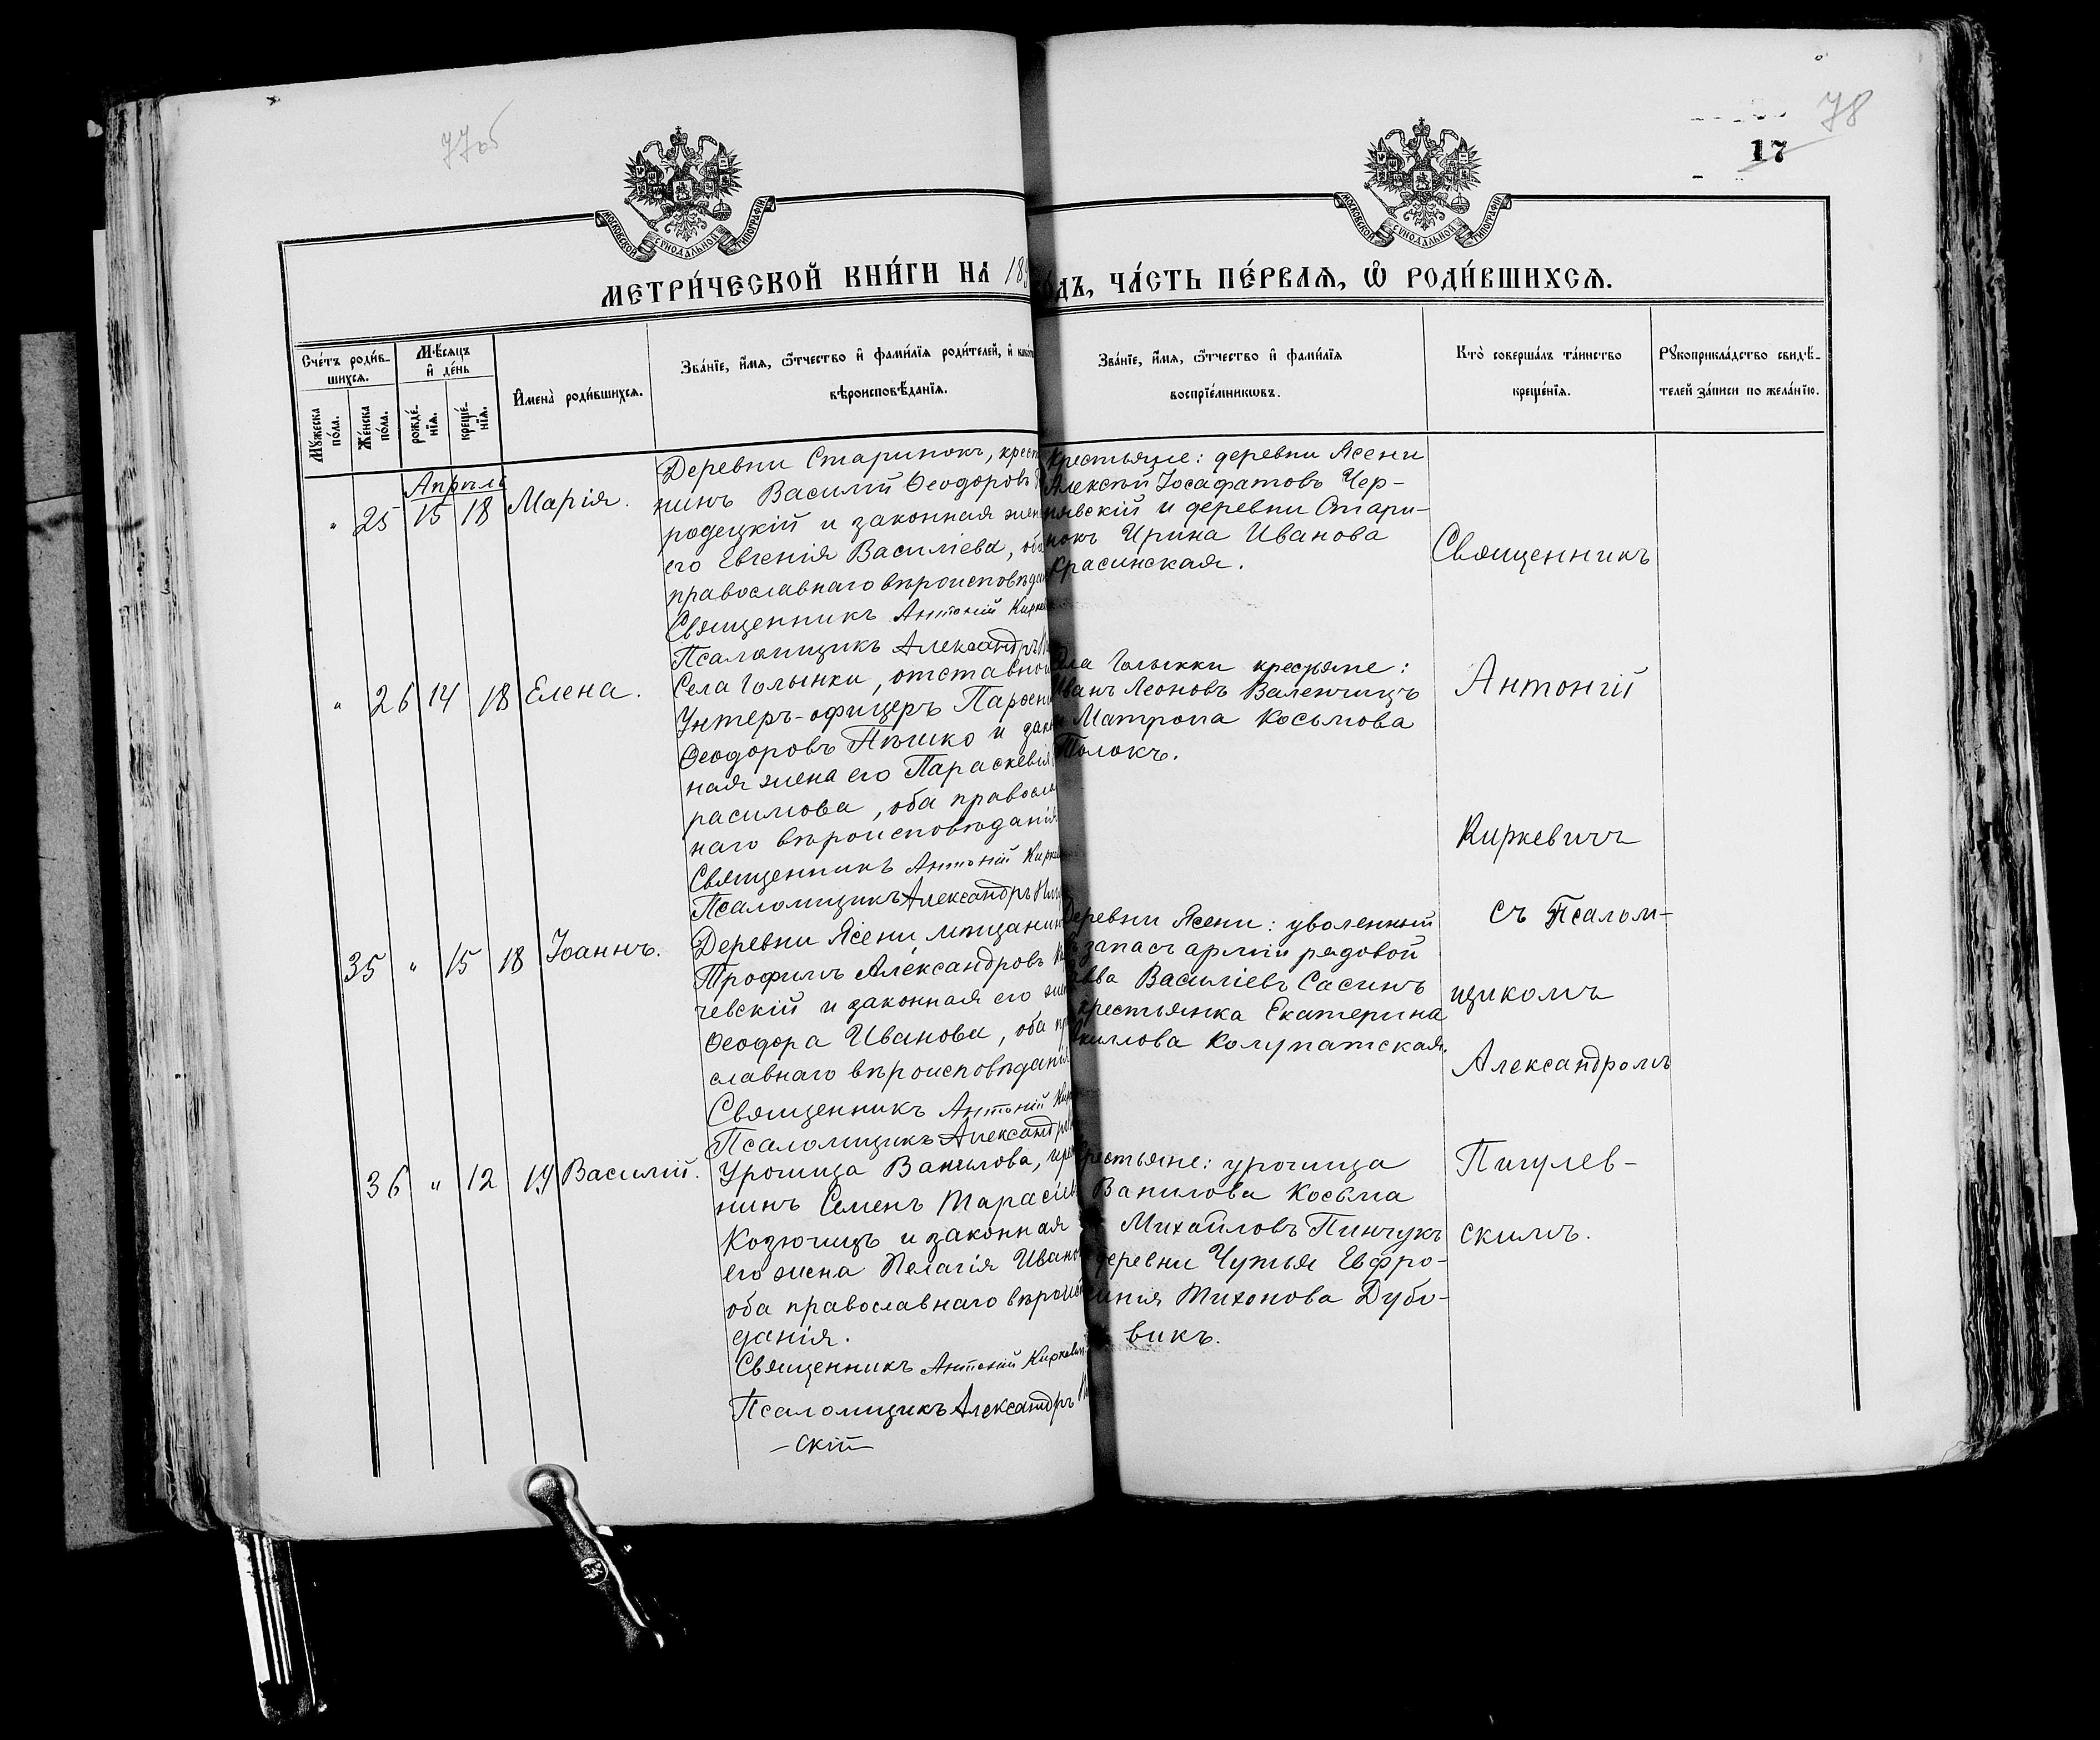 77об
78
17
МОСКОВСКОЙ СѴНОДАЛЬНОЙ ТИПОГРАФІИ
МОСКОВСКОЙ СѴНОДАЛЬНОЙ ТИПОГРАФІИ
МЕТРИ́ЧЕСКОЙ КНИ́ГИ НА 189
ОДЪ, ЧА́СТЬ ПЕ́РВАѦ, Ѿ РОДИ́ВШИХСѦ.
Сче́тъ роди́в-
шихсѧ.
Мꙋжеска по́ла.
Же́нска по́ла.
Мѣ́сѧцъ и де́нь
рожде́-
нїѧ.
креще́-
нїѧ.
Имена̀ роди́вшихсѧ.
Зва́нїе, и́мѧ, ѻ҆́тчество и фами́лїѧ роди́телей, и како
вѣроисповѣ́данїѧ.
Зва́нїе, и́мѧ, ѻ҆́тчество и фами́лїѧ
воспрїе́мникѡвъ.
Кто̀ соверша́лъ та́инство
креще́нїѧ.
Рꙋкоприкла́дство свидѣ́-
телей за́писи по жела́нїю.
Апрѣль
" 25 15 18 Марія.
Деревни Старинокъ, крест
нинъ Василій Ѳеодоровъ
родецкій и законная жен
его Евгенія Василіева, оба
православнаго вѣроисповѣдан
Священникъ Антоній Кирке
Псаломщикъ Александръ
крестьяне: деревни Ясени
Алексѣй Іосафатовъ Чер-
нявскій и деревни Стари-
нокъ Ирина Иванова
Красинская.
" 26 14 18 Елена.
Села Голынки, отставной
Унтеръ-офицеръ Парѳен
Ѳеодоровъ Пѣшко и зако
ная жена его Параскевія
расимова, оба правосла
наго вѣроисповѣданія
Священникъ Антоній Кирке
Псаломщикъ Александръ Пиг
Села Голынки крестьяне:
Иванъ Леоновъ Валенчицъ
и Матрона Косьмова
Толокъ.
35 " 15 18 Іоаннъ.
Деревни Ясени мѣщанинъ
Трофимъ Александровъ
чевскій и законная его жен
Ѳеодора Иванова, оба пр
славнаго вѣроисповѣданія
Священникъ Антоній Кир
Псаломщикъ Александръ
Деревни Ясени: уволенный
въ запасъ арміи рядовой
Савва Василіевъ Сасинъ
крестьянка Екатерина
киллова Колупатская.
36 " 12 19 Василій.
Урочища Ванилова, крес
нинъ Семенъ Тарасіев
Козючицъ и законная
его жена Пелагія Ивано
оба православнаго вѣроиспо
данія.
Священникъ Антоній Киркевич
Псаломщикъ Александръ
-скій
крестьяне: урочища
Ванилова Косьма
Михайловъ Пинчукъ
деревни Чутья Евфро-
синія Тихонова Дубо-
викъ.
Священникъ
Антоній
Киркевичъ
съ Псалом-
щикомъ
Александромъ
Пигулев-
скимъ.